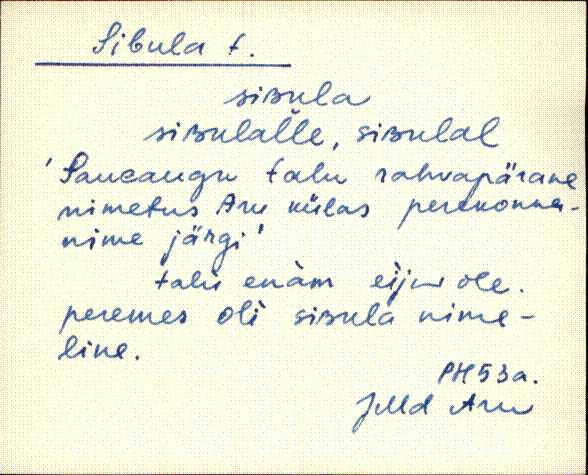 Sibula t.
siʙula
siʙulalle, siʙulal
'Saueaugu talu rahvapärane
nimetus Aru külas perekonna-
nime järgi'
talu enàm eijᴜ ole.
peremes oli siʙula nime-
line.
PH53a.
JMd Aru